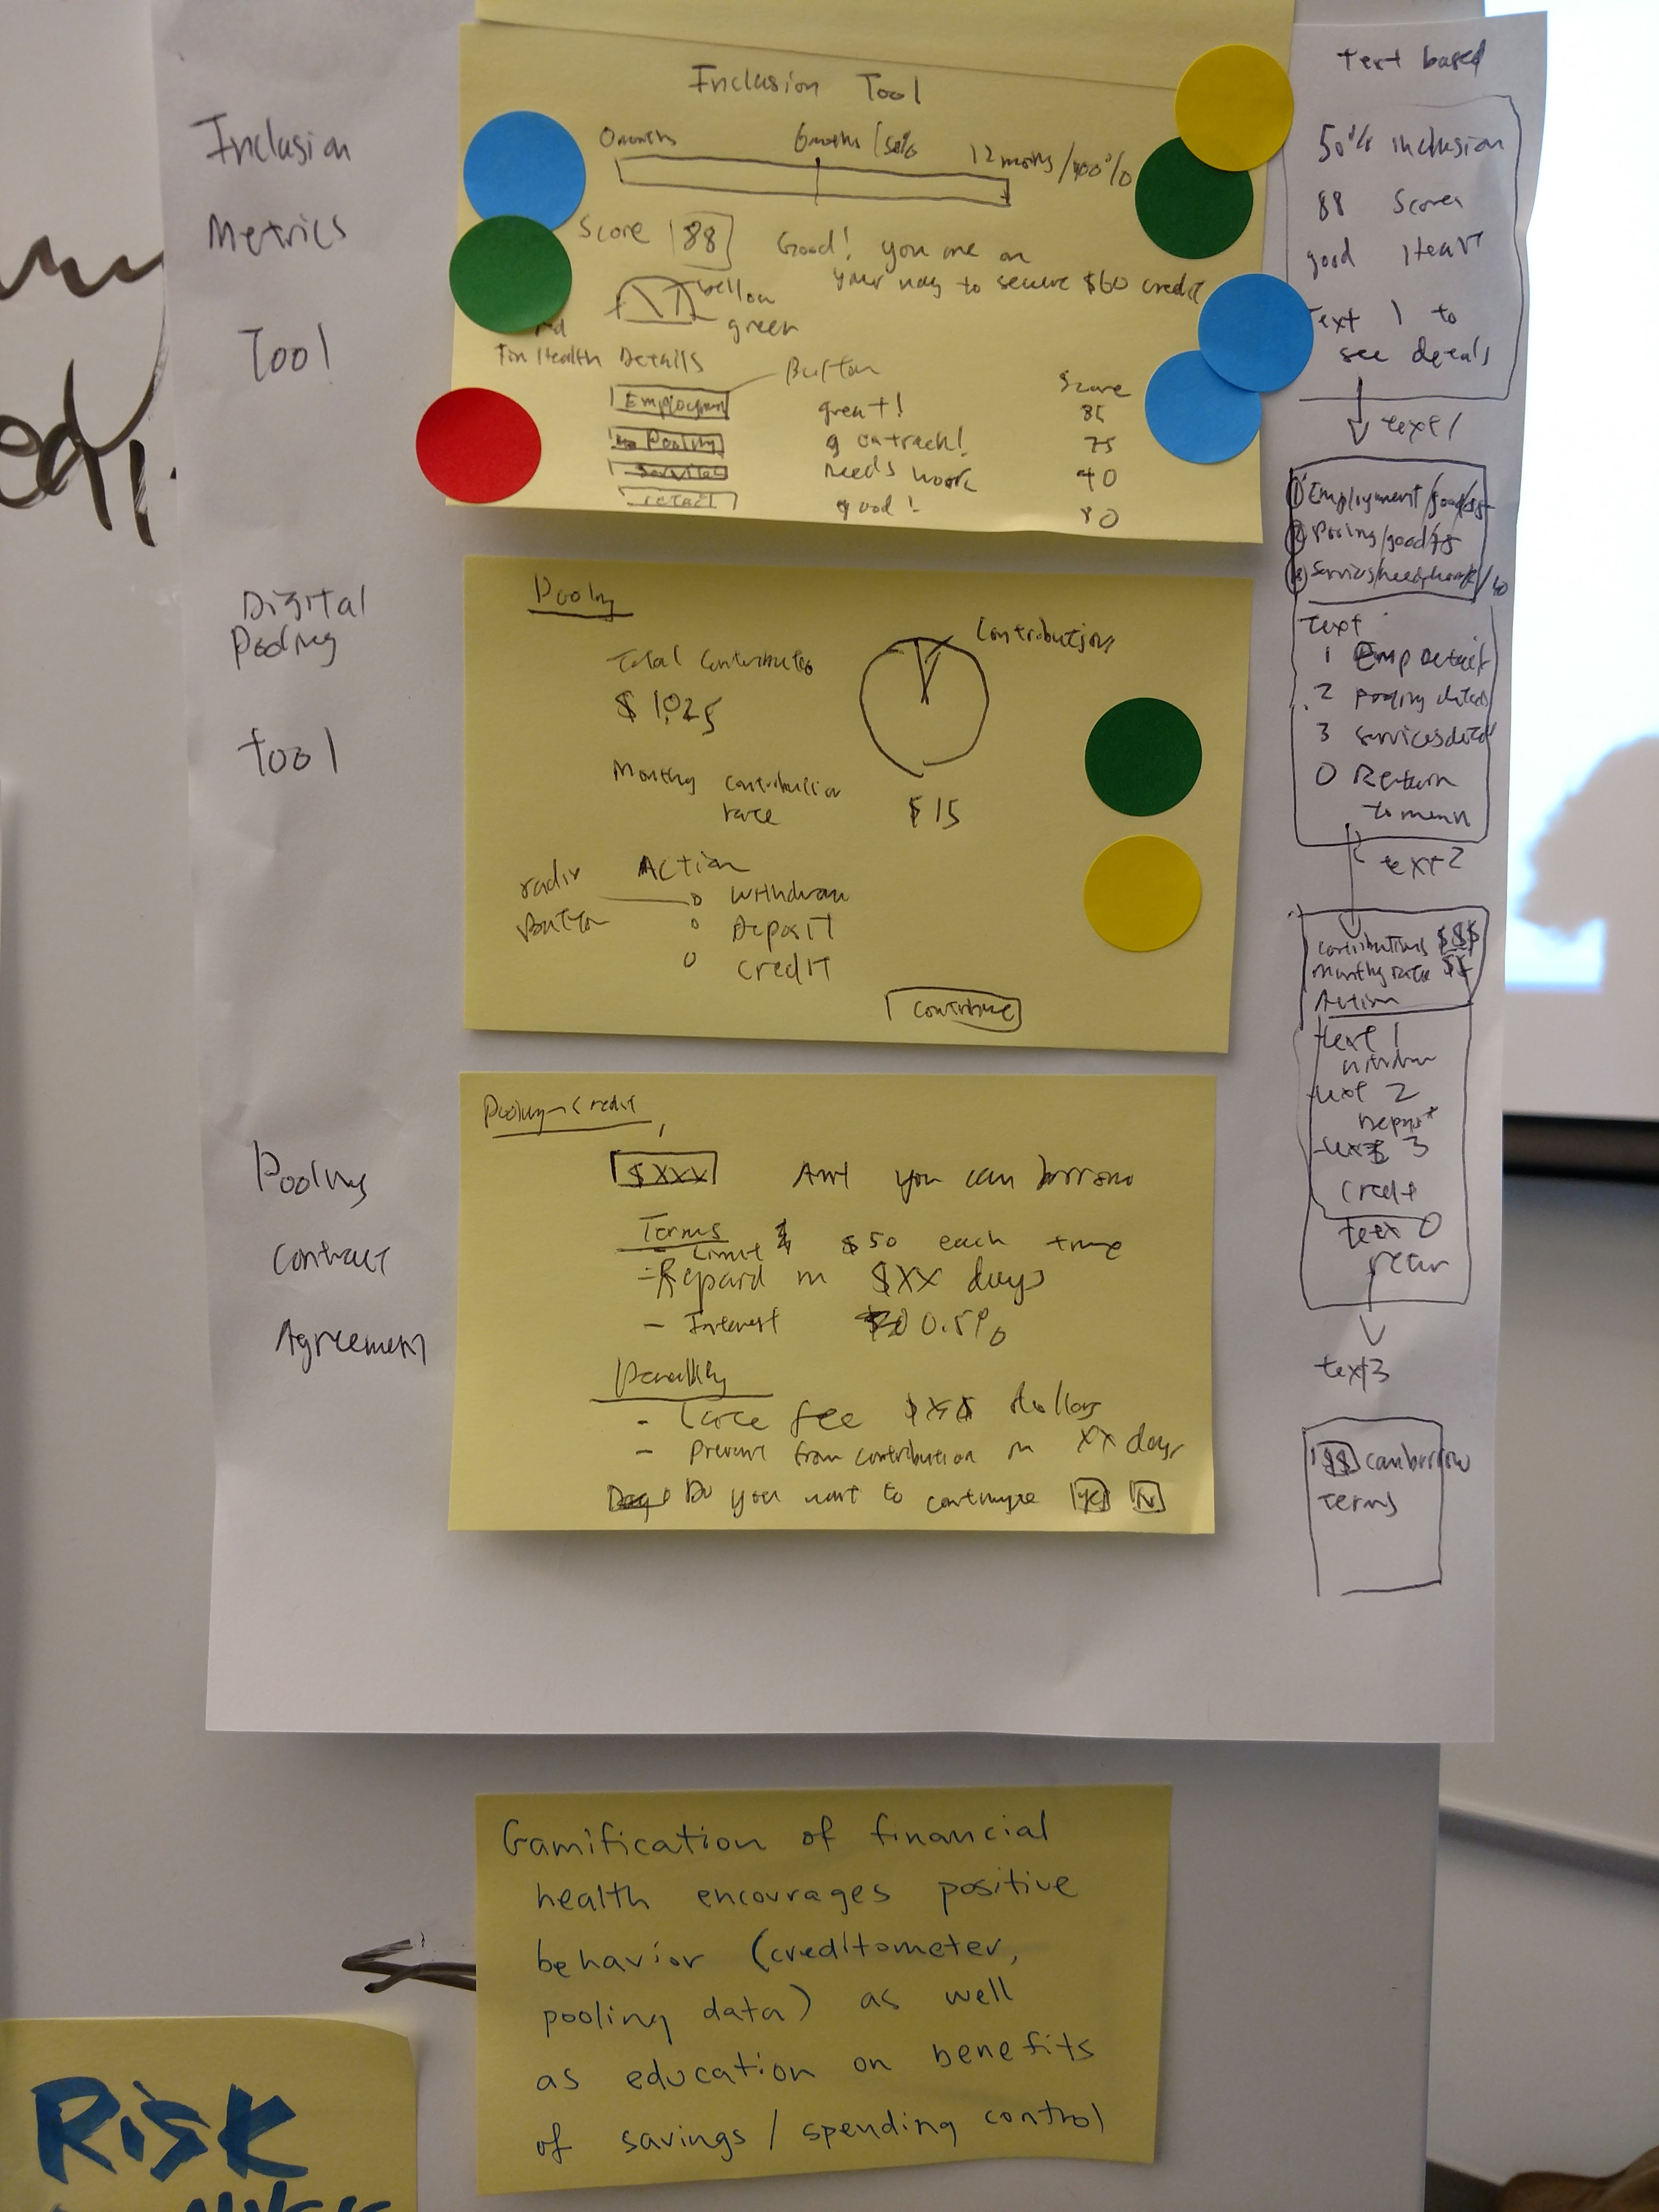 Inclusion
Metrics
Tool
Digital
Pooling
tool
Pooling
Contract
Agreement
Inclusion Tool
0 months
6 months / 50%
12 months / 100%
Score 88
Good! you are on
your way to secure $60 credit
yellow
green
Fin Health Details
Button
Score
Employment great! 85
Pooling on track! 75
Services needs work 40
retail good! 80
Pooling
Contributions
Total Contributes
$ 1,025
Monthly contribution
rate $15
radio
Button
Action
o withdraw
o Deposit
o credit
Contribute
Pooling-Credit
$XXX Amt you can borrow
Terms
- Limit $50 each time
- Repaid in $XX days
- Interest 0.5%
Penalty
- Late fee dollars
- Prevent from contribution in XX days
Do you want to continue Yes N
Text based
50% inclusion
88 Score
good Heart
Text 1 to
see details
text 1
1 Employment/good/85
2 Pooling/good/75
3 Services/needs work/40
text
1 Emp Detail
2 pooling details
3 services detail
0 Return
to menu
text 2
contributions $$$
Monthly rate $$
Action
text 1
withdraw
text 2
Deposit
text 3
Credit
text 0
text3
$$ can borrow
Terms
Gamification of financial
health encourages positive
behavior (creditometer,
pooling data) as well
as education on benefits
of savings / spending control
RISK